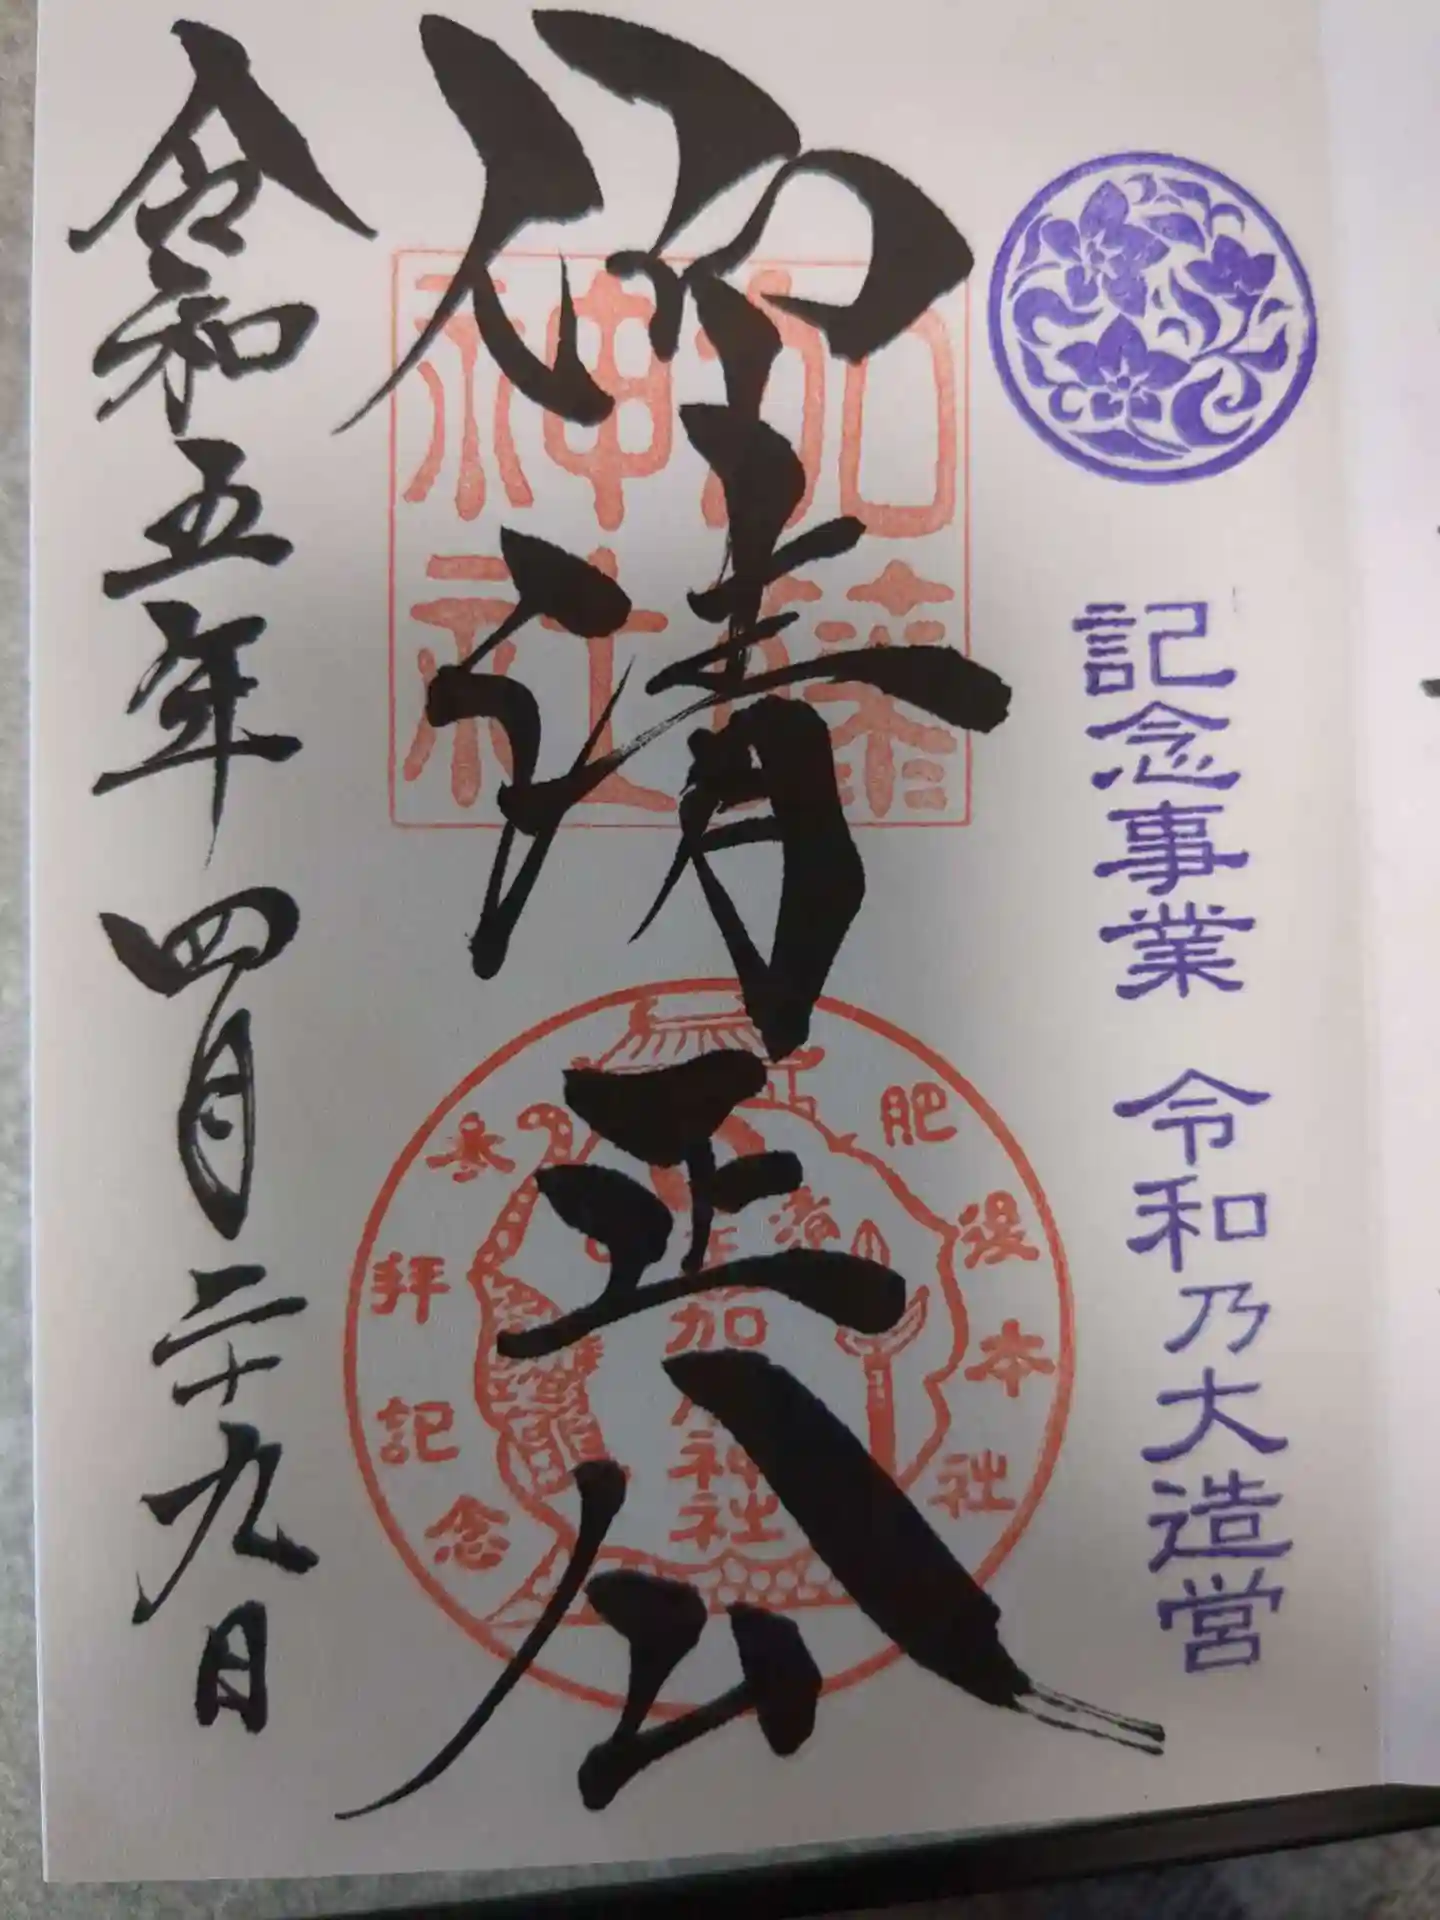 記念事業 令和乃大造営
仰清正公
加藤
神社
肥後本社
参拝記念
清正
加藤神社
令和五年四月二十九日